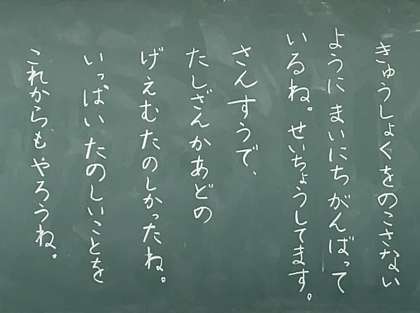 きゅうしょくをのこさない
ようにまいにちがんばって
いるね。せいちょうしてます。
さんすうで、
たしざんかあどの
げえむたのしかったね。
いっぱいたのしいことを
これからもやろうね。